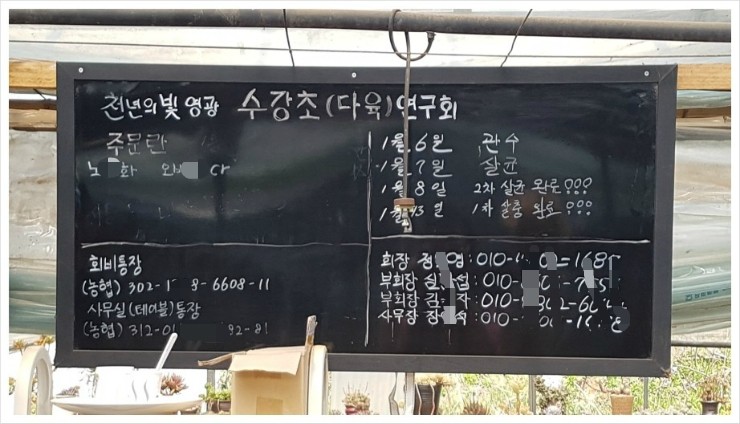 천년의빛 영광 수강초(다육)연구회
주문란
1월 6일 관수
1월 7일 살균
1월 8일 2차 살균 완료
1월 13일 1차 살충 완료
회비통장
(농협) 302-1 8-6608-11
사무실(테이블)통장
(농협) 312-01 92-81
회장 영:010-
부회장 설:010-
부회장 자:010-
사무장 석:010-